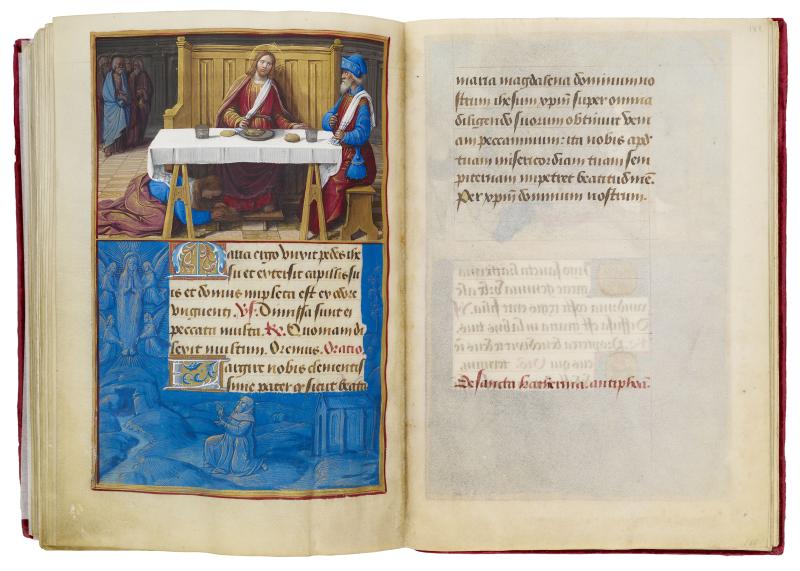 Maria ergo vnxit pedes ihe
su et extersit capillis su
is et domus impleta est ex odore
vnguenti. Vs. Dimissa sunt ei
peccata multa. Rx. Quoniam di
lexit multum. Oremus. Oratio.
Largire nobis clementis
sime pater q sicut beata
maria magdalena dominum no
strum ihesum xpm super omnia
diligendo suorum obtinuit veni
am peccaminum: ita nobis apd
tuam misericordiam tuam sem
piternam impetret beatitudinē.
Per xpm dominum nostrum.
De sancta katherina. antiphoā.